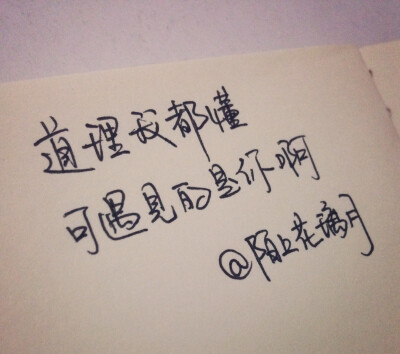 道理我都懂
可遇見的是你啊
@陌上花璃月